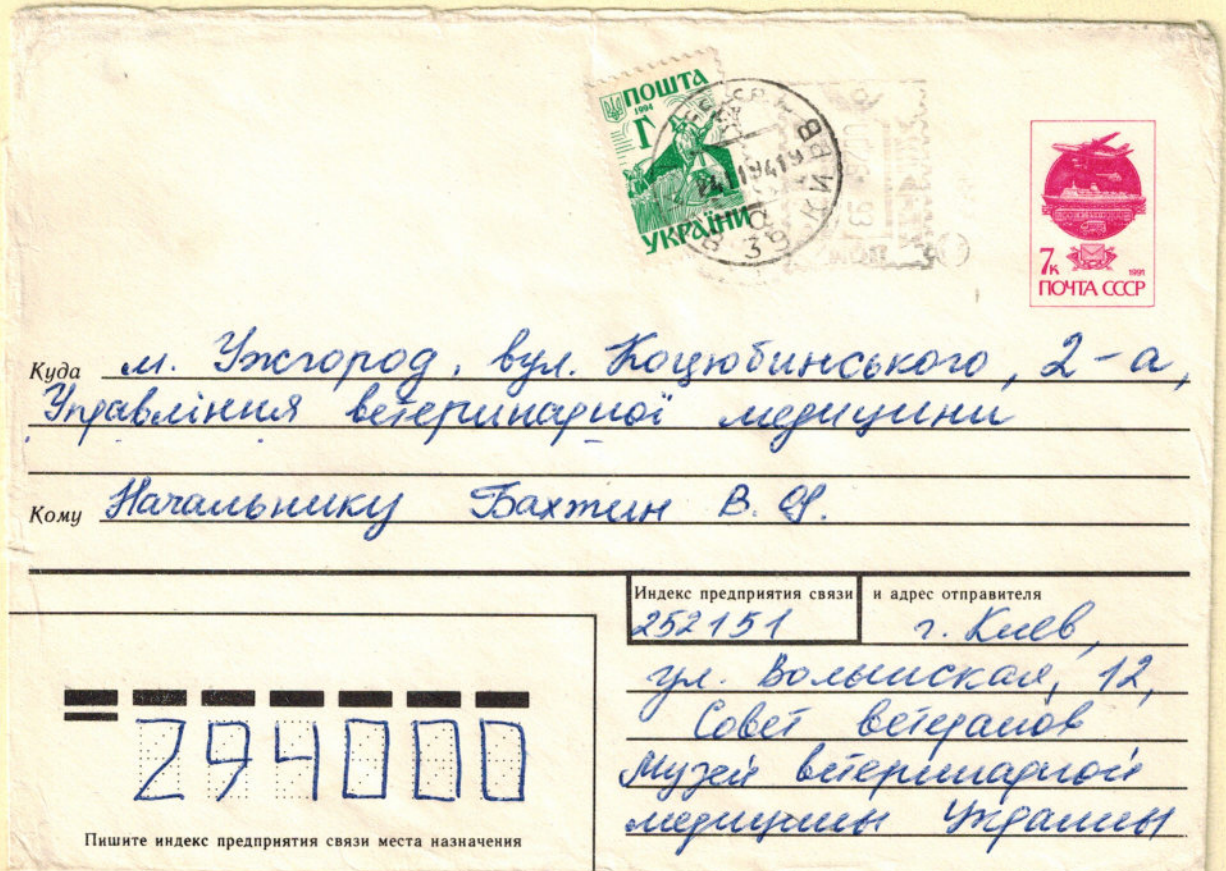 ПОШТА
1994
Г
УКРАЇНИ
КИЇВ
7к
1991
ПОЧТА СССР
Куда м. Ужгород, вул. Коцюбинського, 2-а,
Управління ветеринарної медицини
Кому Начальнику Бахтин В. Я.
Индекс предприятия связи и адрес отправителя
252151 г. Киев,
ул. Волынская, 12,
Совет ветеранов
Музей ветеринарной
медицины Украины
294000
Пишите индекс предприятия связи места назначения